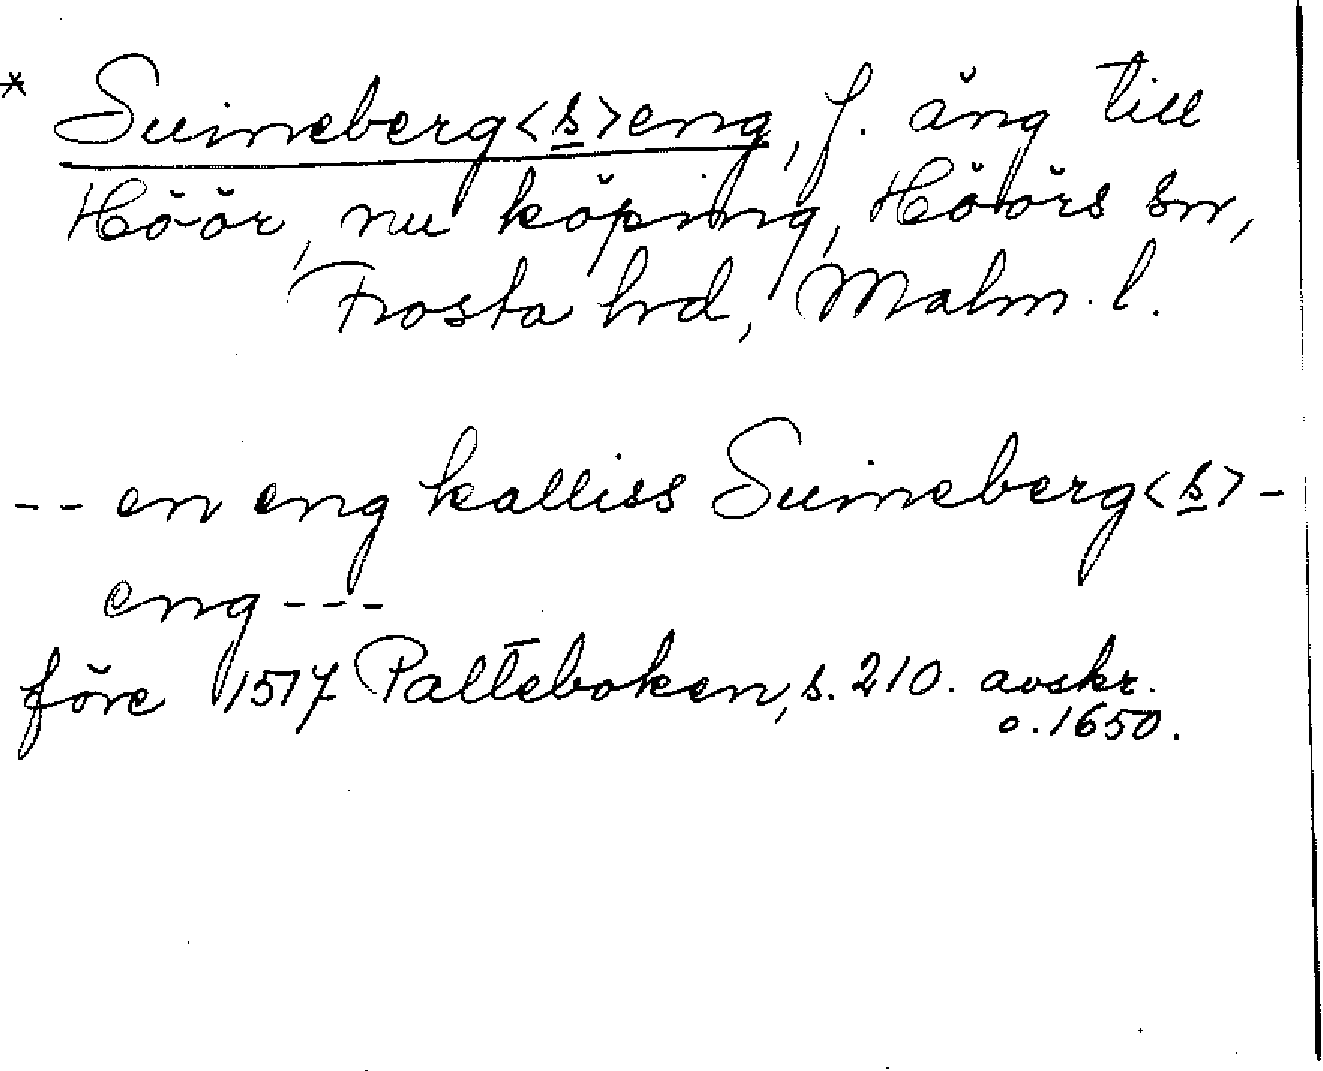 * Suineberg<s>eng, f. äng till
Höör, nu köping, Höörs sn,
Frosta hrd, Malm. l.
-- en eng kalliss Suineberg<s>-
eng ---
före 1517 Palteboken, s. 210. avskr.
o. 1650.